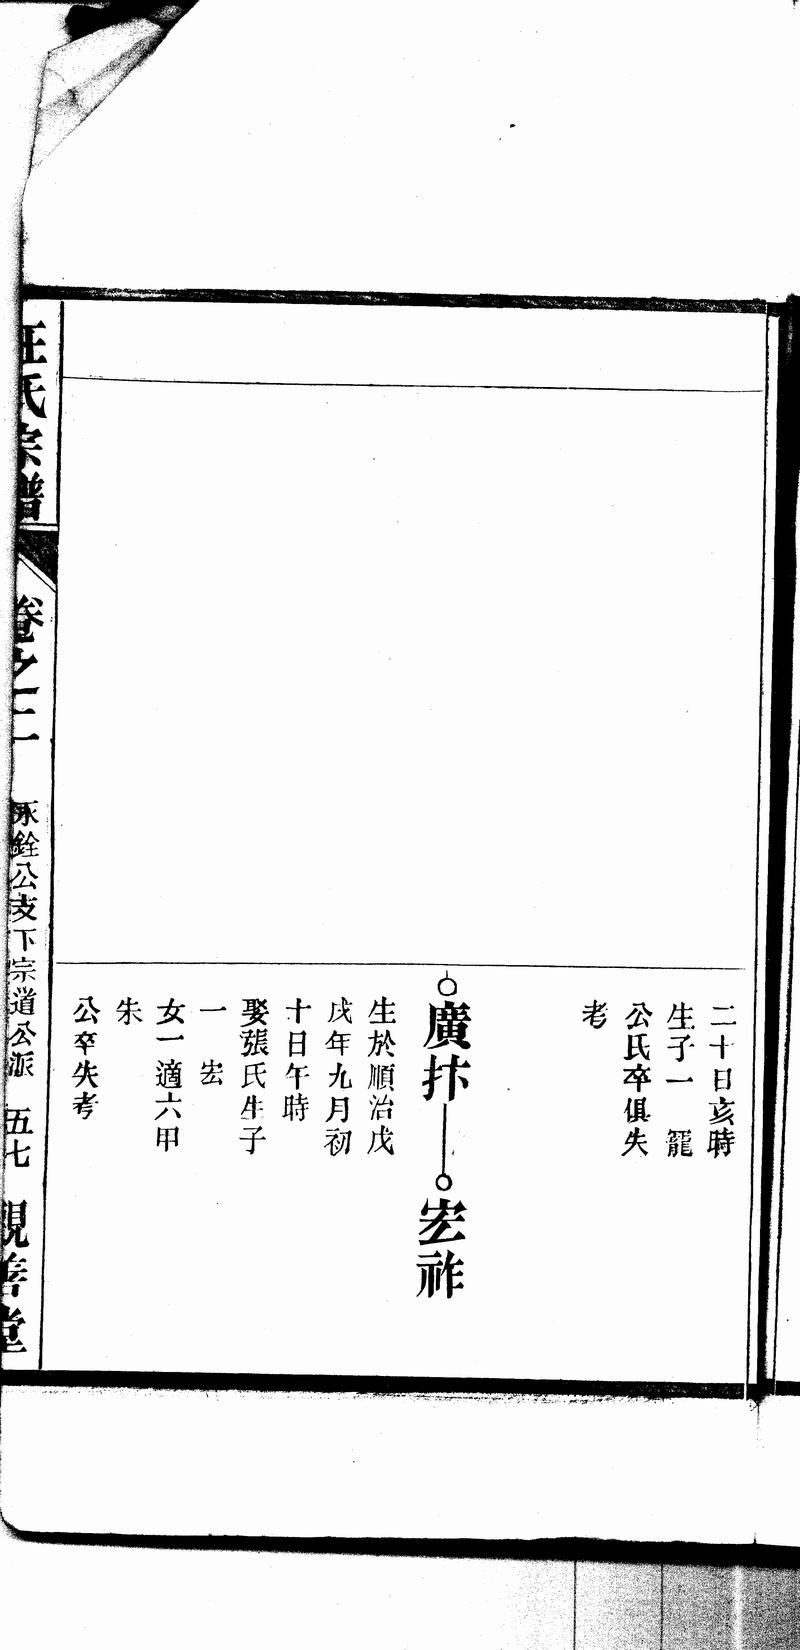 二十日亥時
生子一　寵
公氏卒俱失
老
廣抃
宏祚
生於順治戊
戌年九月初
十日午時
娶張氏生子
一　宏
女一適六甲
朱
公卒失考
汪氏宗譜
卷之二
永銓公支下宗道公派
五七
親善堂